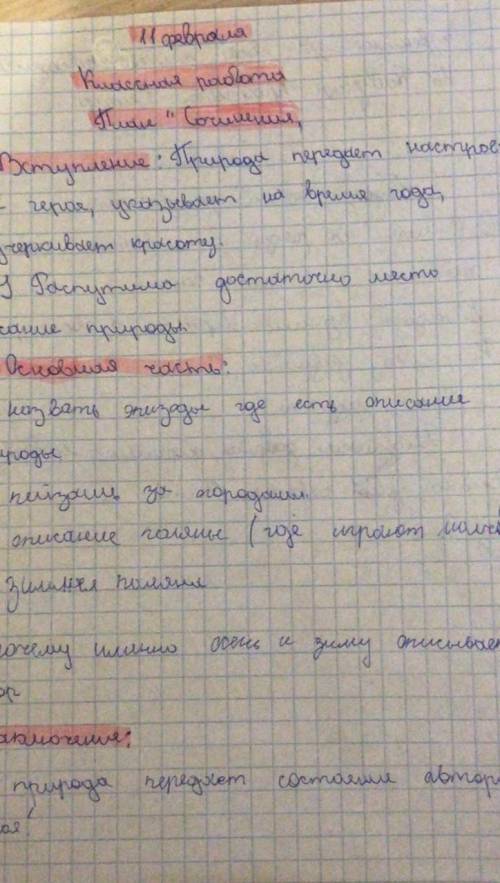 11 февраля
Классная работа
План "Сочинения,
Вступление: Природа передает настрое
героя, указывает на время года,
черкивает красоту.
У Распутина достаточно место
сание природы.
Основная часть:
назвать эпизоды где есть описание
роды
пейзаж за огородами.
описание поляны (где играют
зимняя поляна
очему именно осень и зиму описывает
ор
аключение:
природа передает состояние автор
оя!